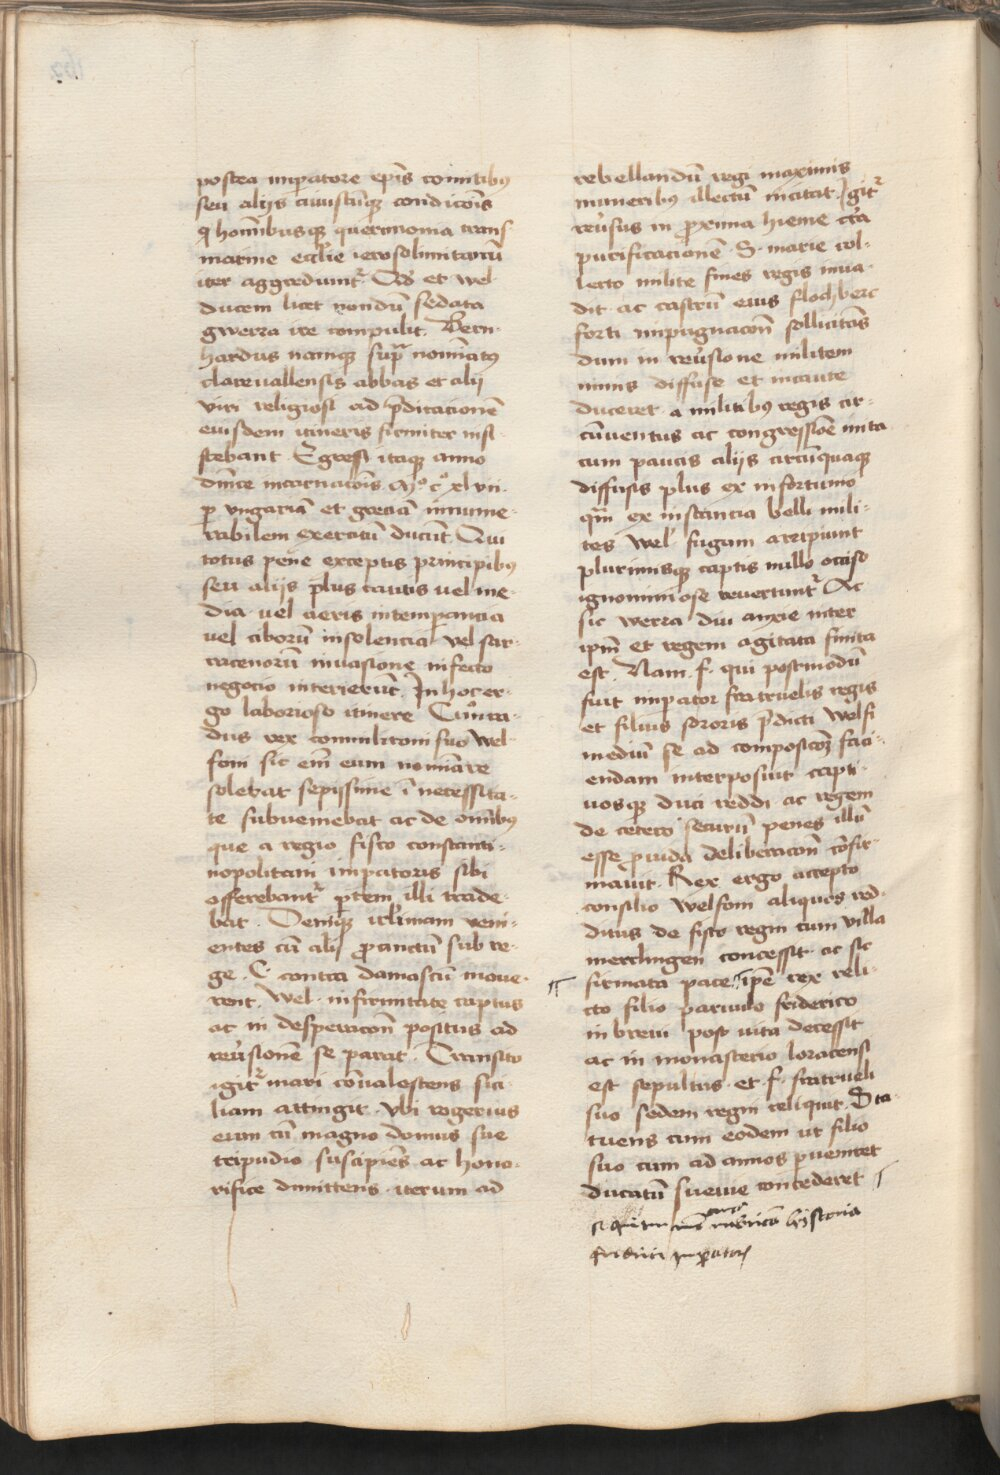 postea imperatore ep̄is comitibꝰ
seu alijs cuiuscūqꝫ condicōis
hominibusqꝫ querimonia trans
marine eccl̄ie ierosolimitanū
iter aggrediunt᷑. Qd̓ et wel.
ducem licet nondū sedata
gwerra ire compulit. Bern-
hardus namqꝫ sup̄ nominatꝰ
clarevallensis abbas et alij
viri religiosi ad p̄dicacionē
eiusdem itineris firmiter insi-
stebant. Egressi itaqꝫ anno
dn̄ice incarnacōis. Mº cº xlvii.
ꝑ vngariā et greciā innume-
rabilem exercitū ducūt. Qui
totus pene exceptis principibꝰ
seu aliis plus cautis vel ine-
dia vel aeris intemꝑantia
vel ciborū insolencia vel sar-
racenorū inuasione infecto
negocio interierūt. In hoc er-
go laborioso itinere Cūnra-
dus rex commilitoni suo wel-
foni sic em̄ eum nominare
solebat sepissime ī necessita-
te subueniebat ac de om̄ibꝰ
que a regio fisco constanti-
nopolitani imꝑatoris sibi
offerebant᷑ ꝑtem illi trade-
bat. Deniqꝫ ierl̄imam veni-
entes cū alij ꝓfanctum sub re-
ge. C contra damascū moue-
rent. Wel. infirmitate captus
ac in desperacōn positus ad
reūsionē se parat. Transito
igit᷑ mari cōualescens sici-
liam attingit. Vbi rogerius
eum cū magno domus sue
tripudio suscipiēs ac hono-
rifice dimittens iterum ad
rebellandū regi maximis
muneribꝰ illectū incitat. Igit᷑
reūsus in ꝓxima hieme cīta
purificacionē. S. marie col-
lecto milite fines regis inua-
dit. ac castrū eius flochberc
forti impugnacōn sollicitās
dum in reūsione militem
nimis diffuse et incaute
duceret. a militibꝰ regis cir-
cūuentus ac congressiōe inita
cum paucis aliis circūquaqꝫ
diffusis plus ex infortunio
qm̄ ex instancia belli mili-
tes wel. fugam arripiunt
plurimisqꝫ captis nullo occiso
ignominiose reuertunt᷑. Ac
sic werra diu anxie inter
ip̄m et regem agitata finita
est. Nam. f. qui postmodū
fuit imꝑator fratruelis regis
et filius sororis p̄dicti welfi
mediū se ad composicōꝫ faci-
endam interposuit capti-
uosqꝫ duci reddi ac regem
de cetero securū penes illū
esse ꝓuida deliberacōn cōfir-
mauit. Rex ergo accepto
consilio welfoni aliquos red-
ditus de fisco regni cum villa
merdingen concessit. ac sic
firmata pace ip̄e rex reli-
cto filio paruulo friderico
in breui post vita decessit
ac in monasterio loracensi
est sepultus. et f. fratrueli
suo sedem regni reliquit. Sta-
tuens cum eodem ut filio
suo cum ad annos ꝑueniret
ducatū sueuie concederet
historia
friderici imꝑatoris